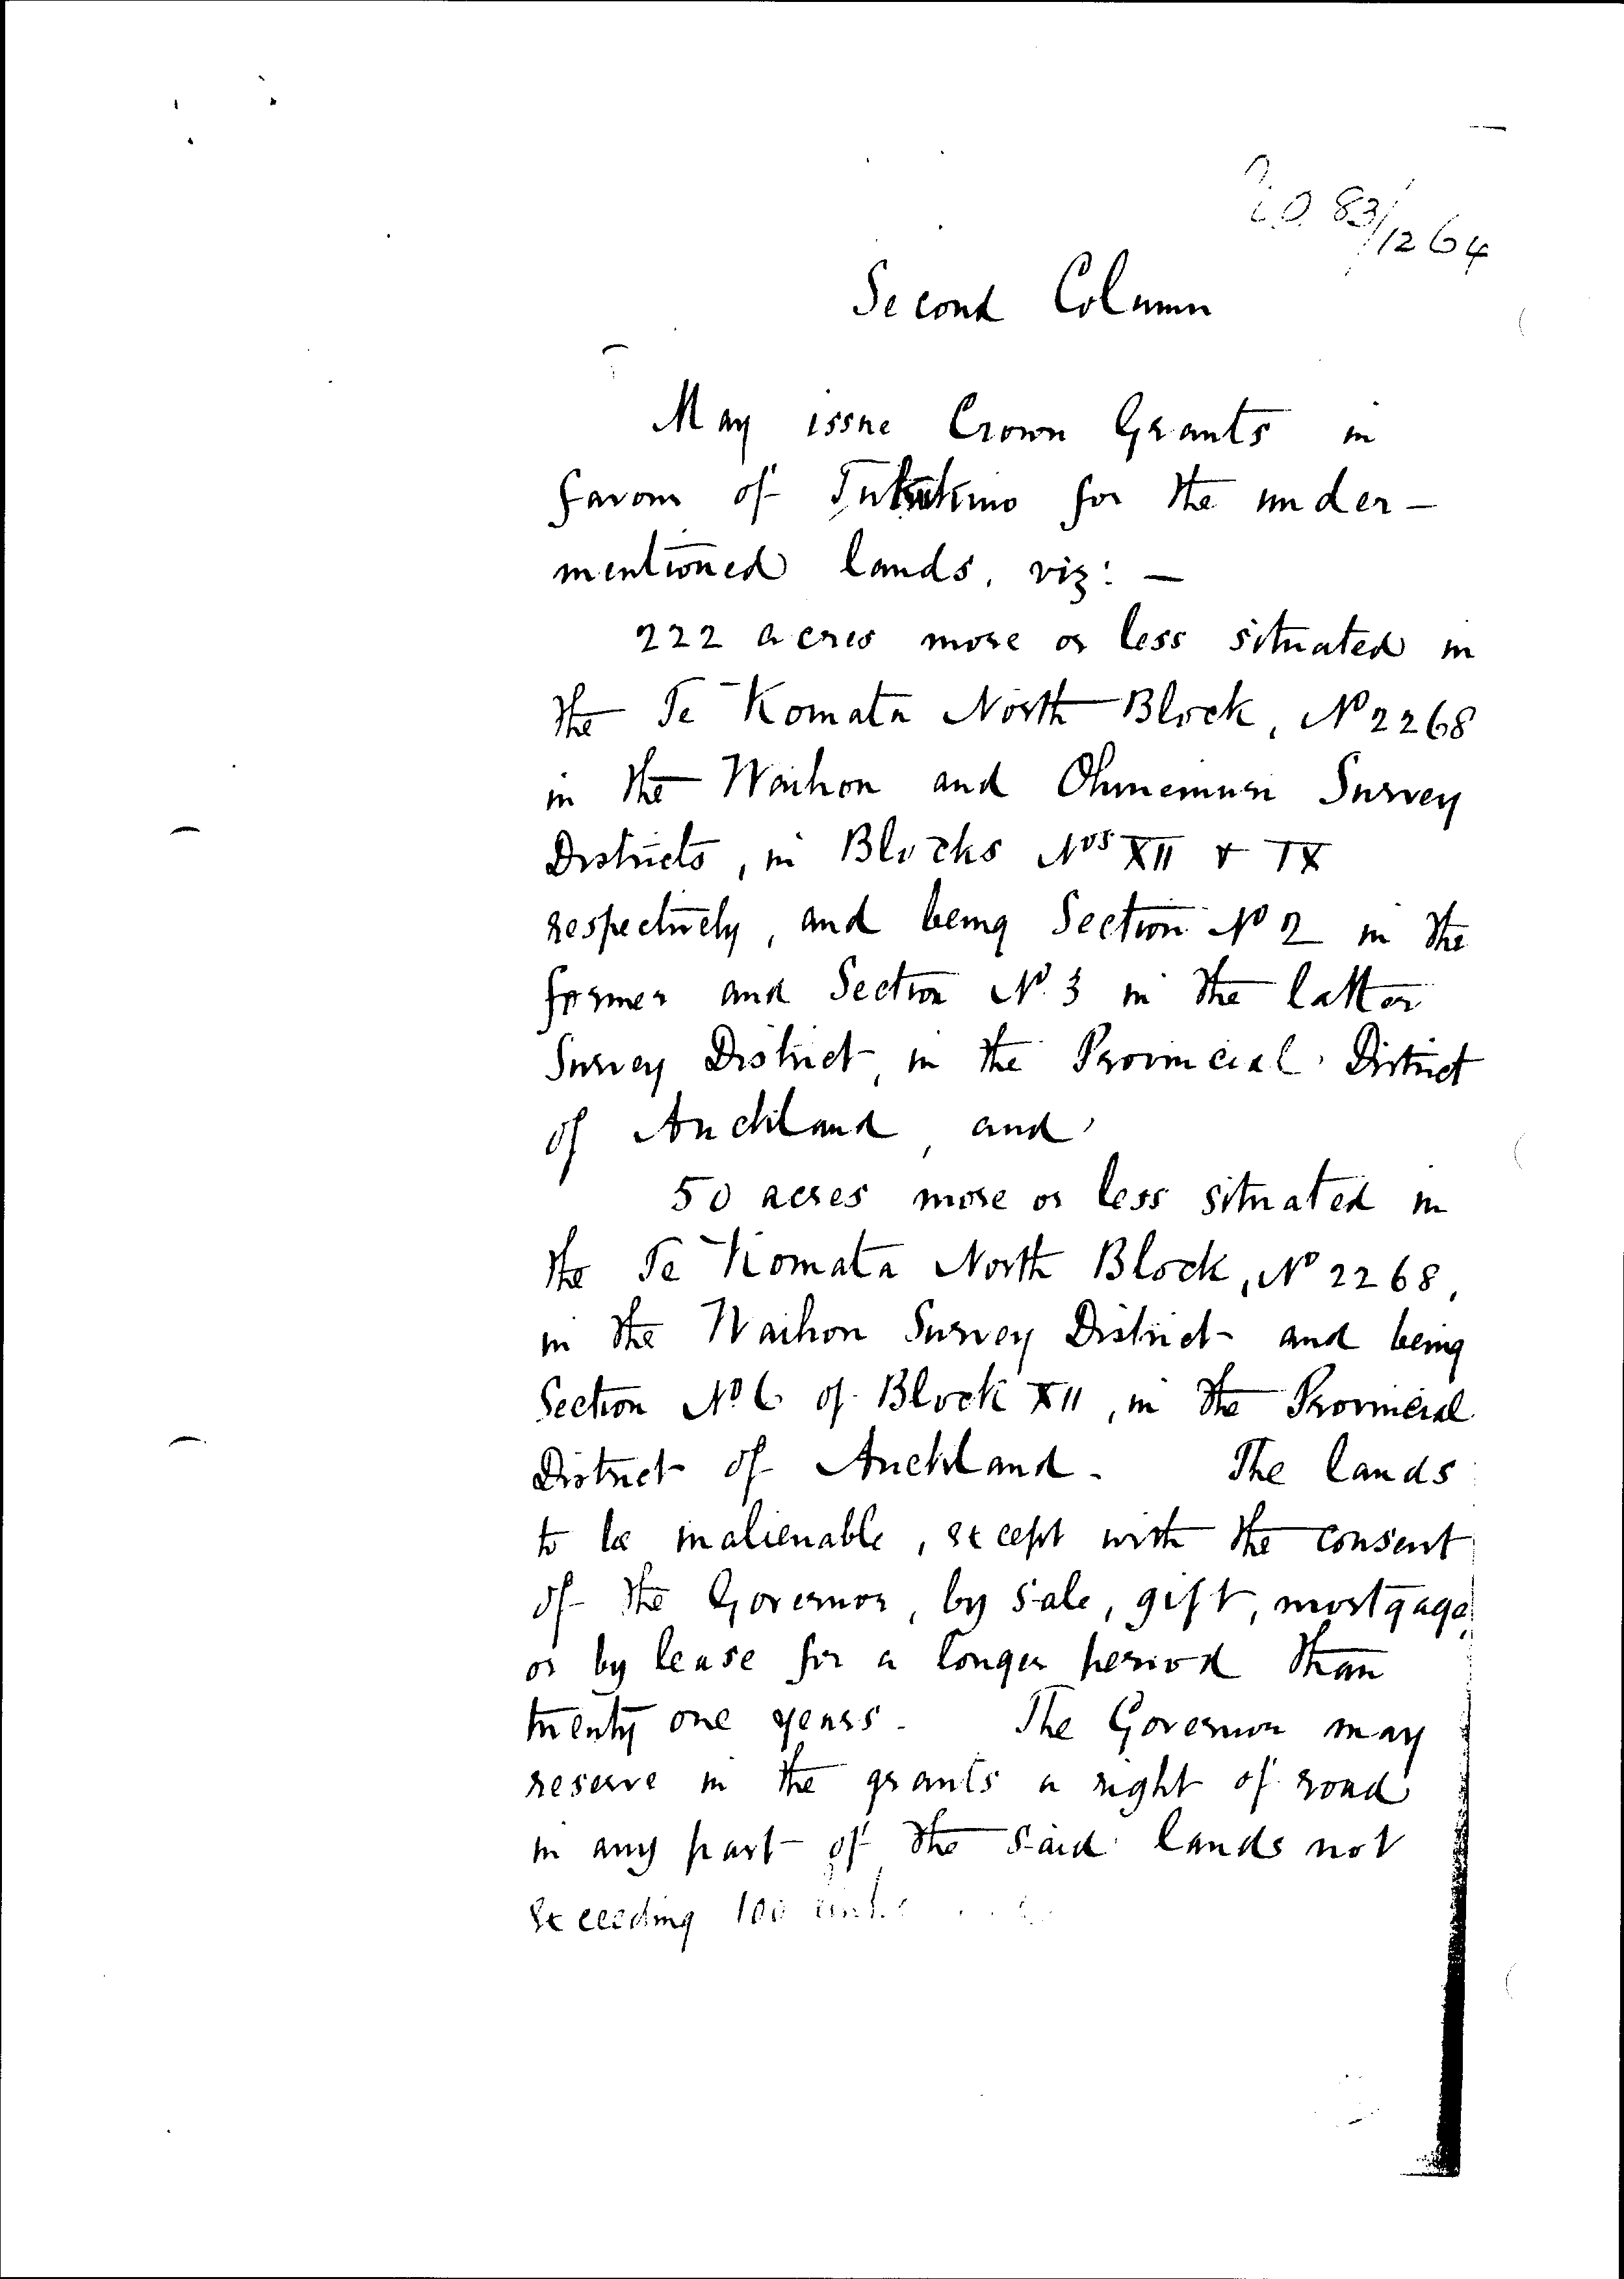 83/1264
Second Column
May issue Crown Grants in
favour of Tukukino for the under-
mentioned lands, viz: —
222 acres more or less situated in
the Te Komata North Block, No 2268
in the Waihou and Ohinemuri Survey
Districts, in Blocks Nos XII & IX
respectively, and being Section No 2 in the
former and Section No. 3 in the latter
Survey District, in the Provincial District
of Auckland, and
50 acres more or less situated in
the Te Komata North Block, No 2268,
in the Waihou Survey District and being
Section No. 6 of Block XII, in the Provincial
District of Auckland. The lands
to be inalienable, except with the consent
of the Governor, by sale, gift, mortgage,
or by lease for a longer period than
twenty one years. The Governor may
reserve in the grants a right of road
in any part of the said lands not
exceeding 100 links